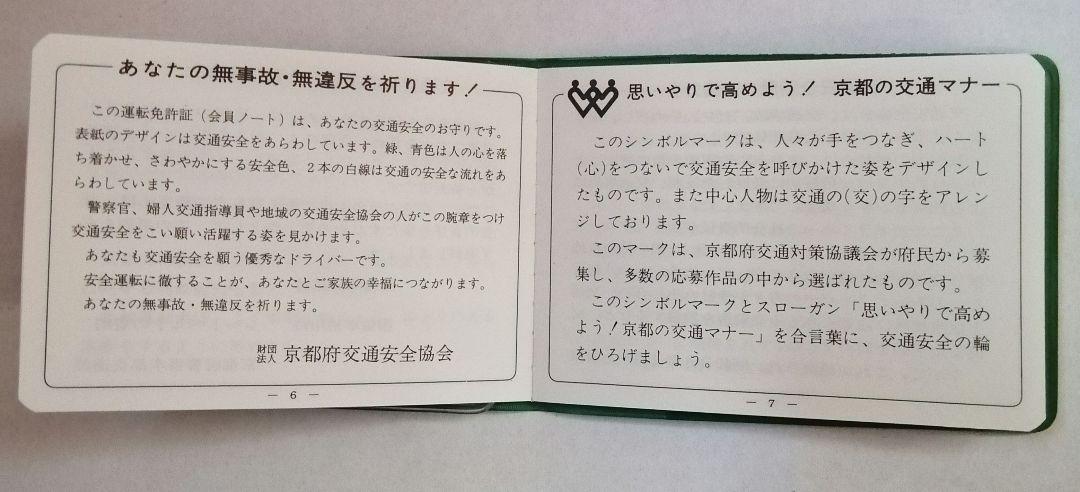 あなたの無事故・無違反を祈ります！
この運転免許証（会員ノート）は、あなたの交通安全のお守りです。
表紙のデザインは交通安全をあらわしています。緑、青色は人の心を落
ち着かせ、さわやかにする安全色、２本の白線は交通の安全な流れをあ
らわしています。
警察官、婦人交通指導員や地域の交通安全協会の人がこの腕章をつけ
交通安全をこい願い活躍する姿を見かけます。
あなたも交通安全を願う優秀なドライバーです。
安全運転に徹することが、あなたとご家族の幸福につながります。
あなたの無事故・無違反を祈ります。
財団法人 京都府交通安全協会
― 6 ―
思いやりで高めよう！ 京都の交通マナー
このシンボルマークは、人々が手をつなぎ、ハート
(心)をつないで交通安全を呼びかけた姿をデザインし
たものです。また中心人物は交通の(交)の字をアレン
ジしております。
このマークは、京都府交通対策協議会が府民から募
集し、多数の応募作品の中から選ばれたものです。
このシンボルマークとスローガン「思いやりで高め
よう！京都の交通マナー」を合言葉に、交通安全の輪
をひろげましょう。
― 7 ―